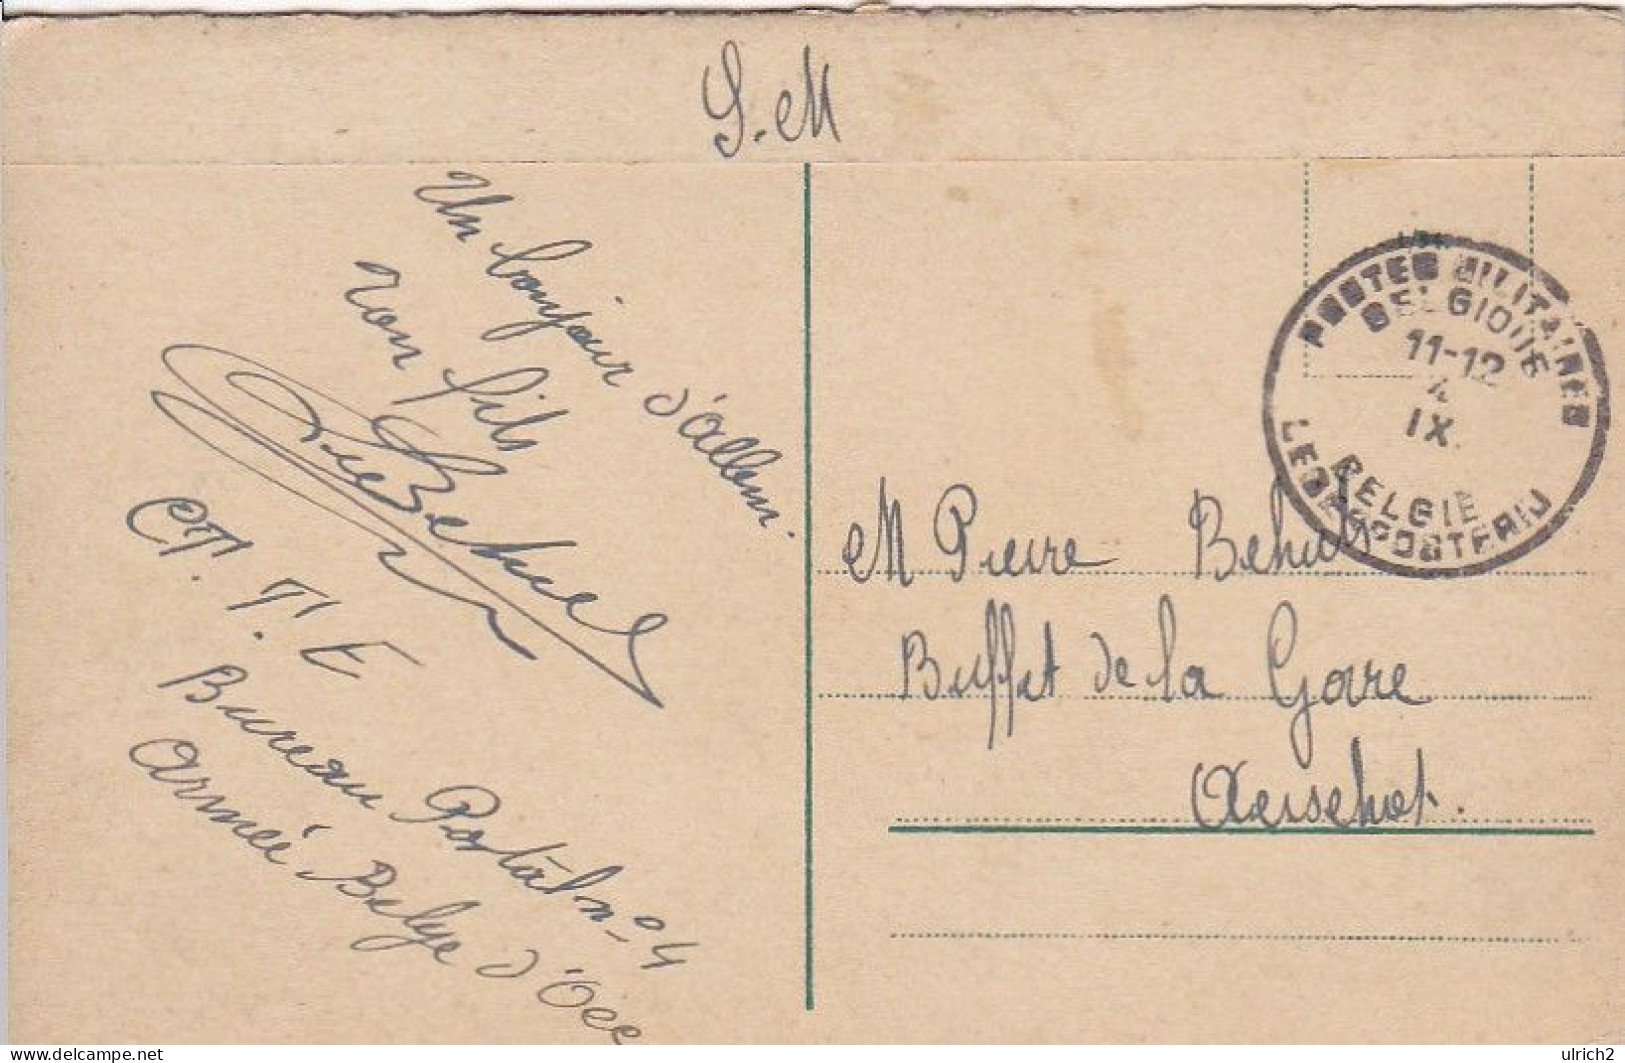 S.M
Un bonjour d'allem.
ton fils
C.T. T.E
Bureau Postal n° 4
Armée Belge d'Occ
POSTES MILITAIRES
BELGIQUE
11-12
4
IX.
BELGIE
LEGERPOSTERIJ
M Pierre
Buffet de la Gare
Aerschot.
delcampe.net
ulrich2